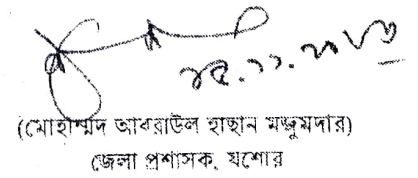 ২৫.১১.২০২৩
(মোহাম্মদ আবরাউল হাছান মজুমদার)
জেলা প্রশাসক, যশোর